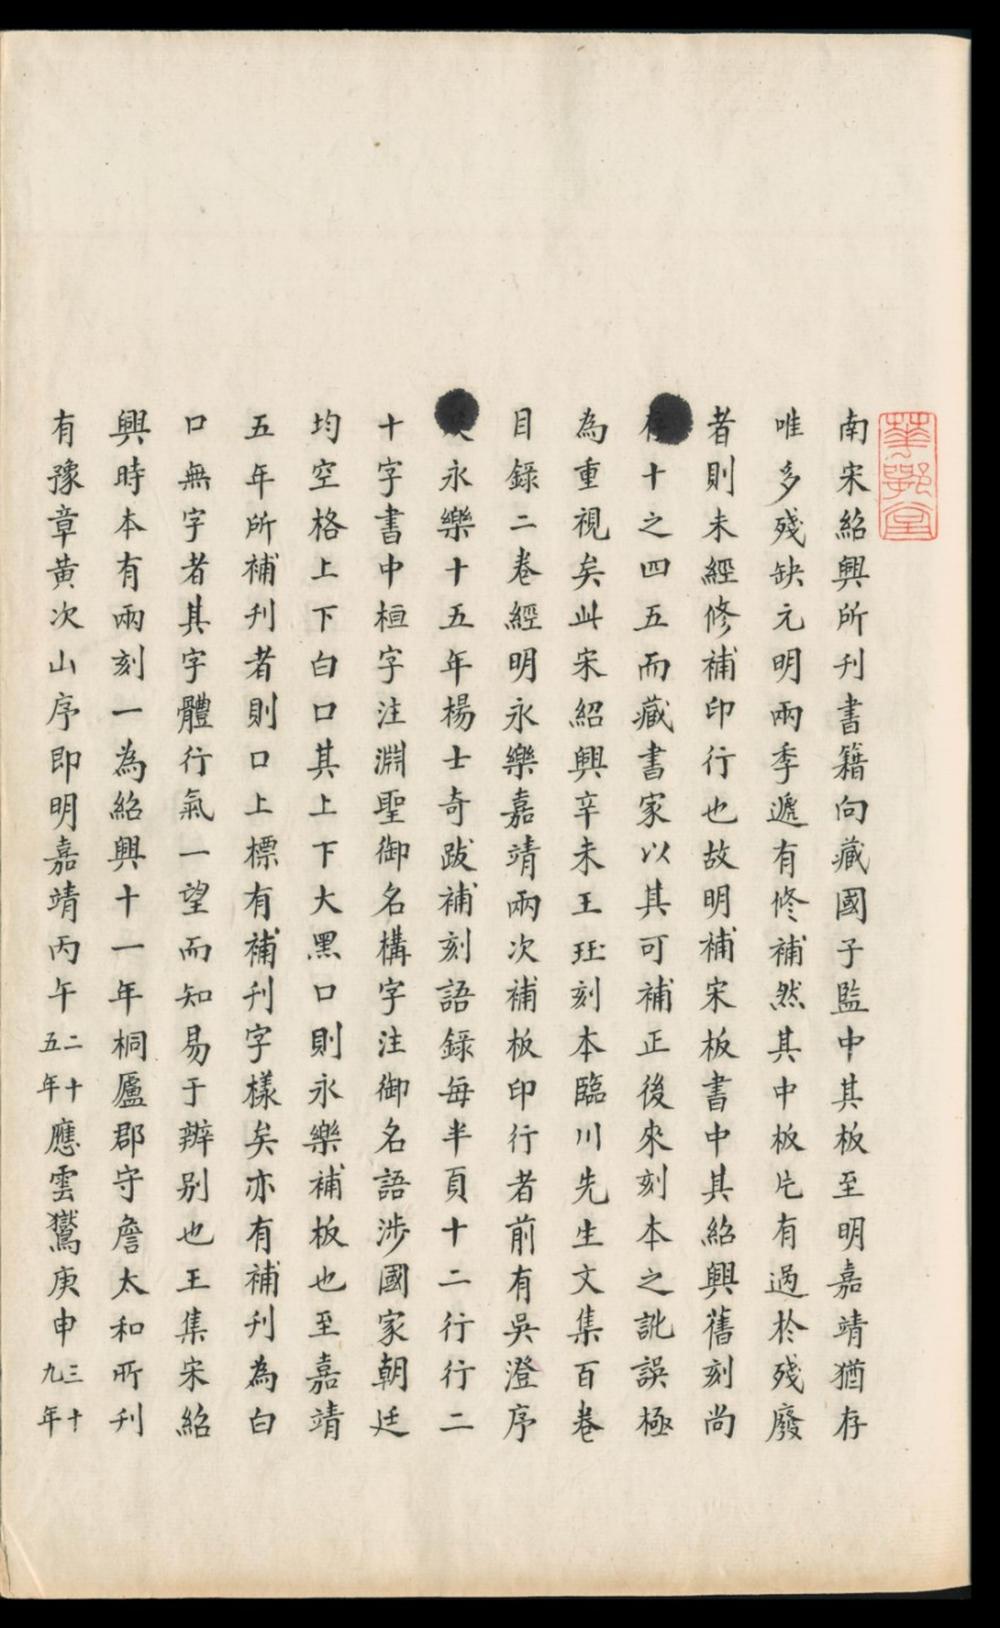 華鄂堂
南宋紹興所刊書籍向藏國子監中其板至明嘉靖猶存
唯多殘缺元明兩季遞有修補然其中板片有過於殘廢
者則未經修補印行也故明補宋板書中其紹興舊刻尚
十之四五而藏書家以其可補正後來刻本之訛誤極
為重視矣此宋紹興辛未王珏刻本臨川先生文集百卷
目錄二卷經明永樂嘉靖兩次補板印行者前有吳澄序
永樂十五年楊士奇跋補刻語錄每半頁十二行行二
十字書中桓字注淵聖御名構字注御名語涉國家朝廷
均空格上下白口其上下大黑口則永樂補板也至嘉靖
五年所補刊者則口上標有補刊字樣矣亦有補刊為白
口無字者其字體行氣一望而知易于辨别也王集宋紹
興時本有兩刻一為紹興十一年桐廬郡守詹太和所刊
有豫章黃次山序即明嘉靖丙午二十五年應雲鸑庚申三十九年